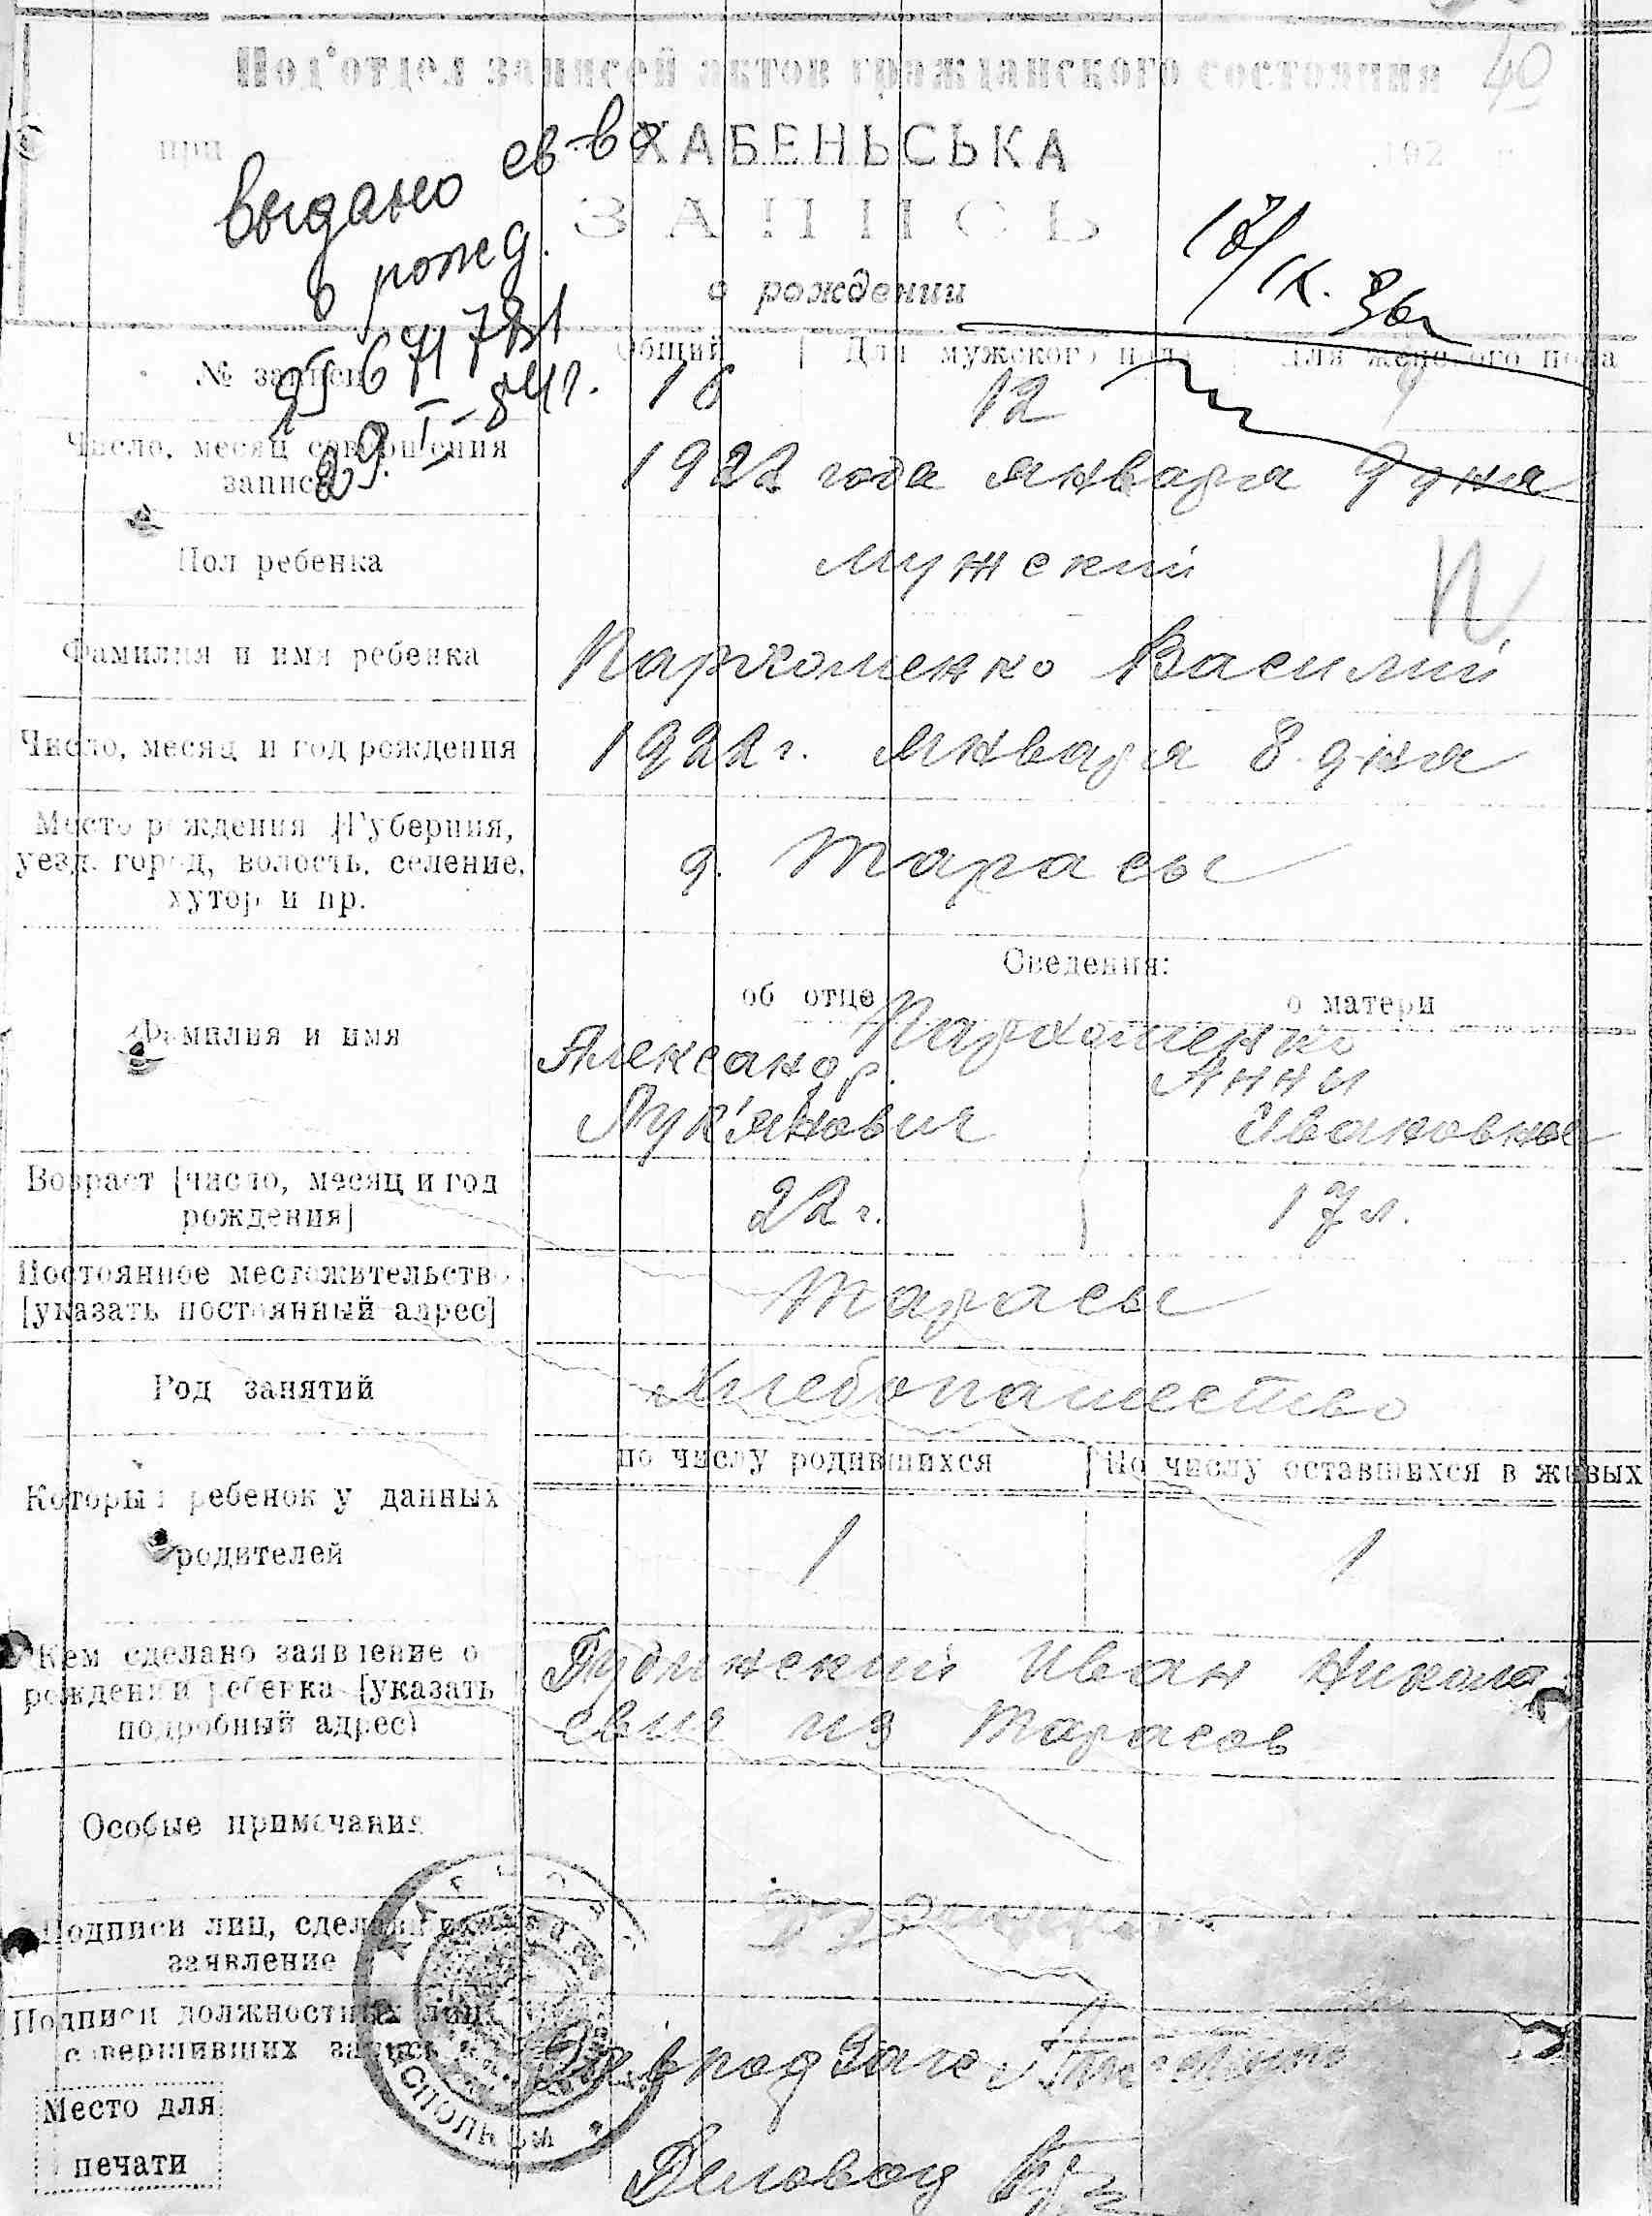 40
Под'отдел записей актов гражданского состояния
при ХАБЕНЬСЬКА 192 г.
Выдано св-во
о рожд.
29. I-84г.
ЗАПИСЬ
о рождении
17/IX. 36г
№ записи
Общий | Для мужского пола | Для женского пола
16 12
Число, месяц совершения
записи
1922 года января 9 дня
Пол ребенка
мужский
Фамилия и имя ребенка
Пархоменко Василий
Число, месяц и год рождения
1922 г. января 8 дня
Место рождения [Губерния,
уезд, город, волость, селение,
хутор и пр.
д. Тарасы
Сведения:
об отце
о матери
Фамилия и имя
Пархоменко
Александр.
Анна
Лук'янович
Ивановна
Возраст [число, месяц и год
рождения]
22 г.
17 л.
Постоянное местожительство
[указать постоянный адрес]
Тарасы
Род занятий
Хлебопашество
По числу родившихся
По числу оставшихся в живых
Который ребенок у данных
родителей
1
1
Кем сделано заявление о
рождении ребенка [указать
подробный адрес)
Иван Никола
евич из Тарасов
Особые примечания
Подписи лиц, сделавших
заявление
Подписи должностных лиц,
совершивших запись
Зав. подзагс
Место для
печати
Деловод